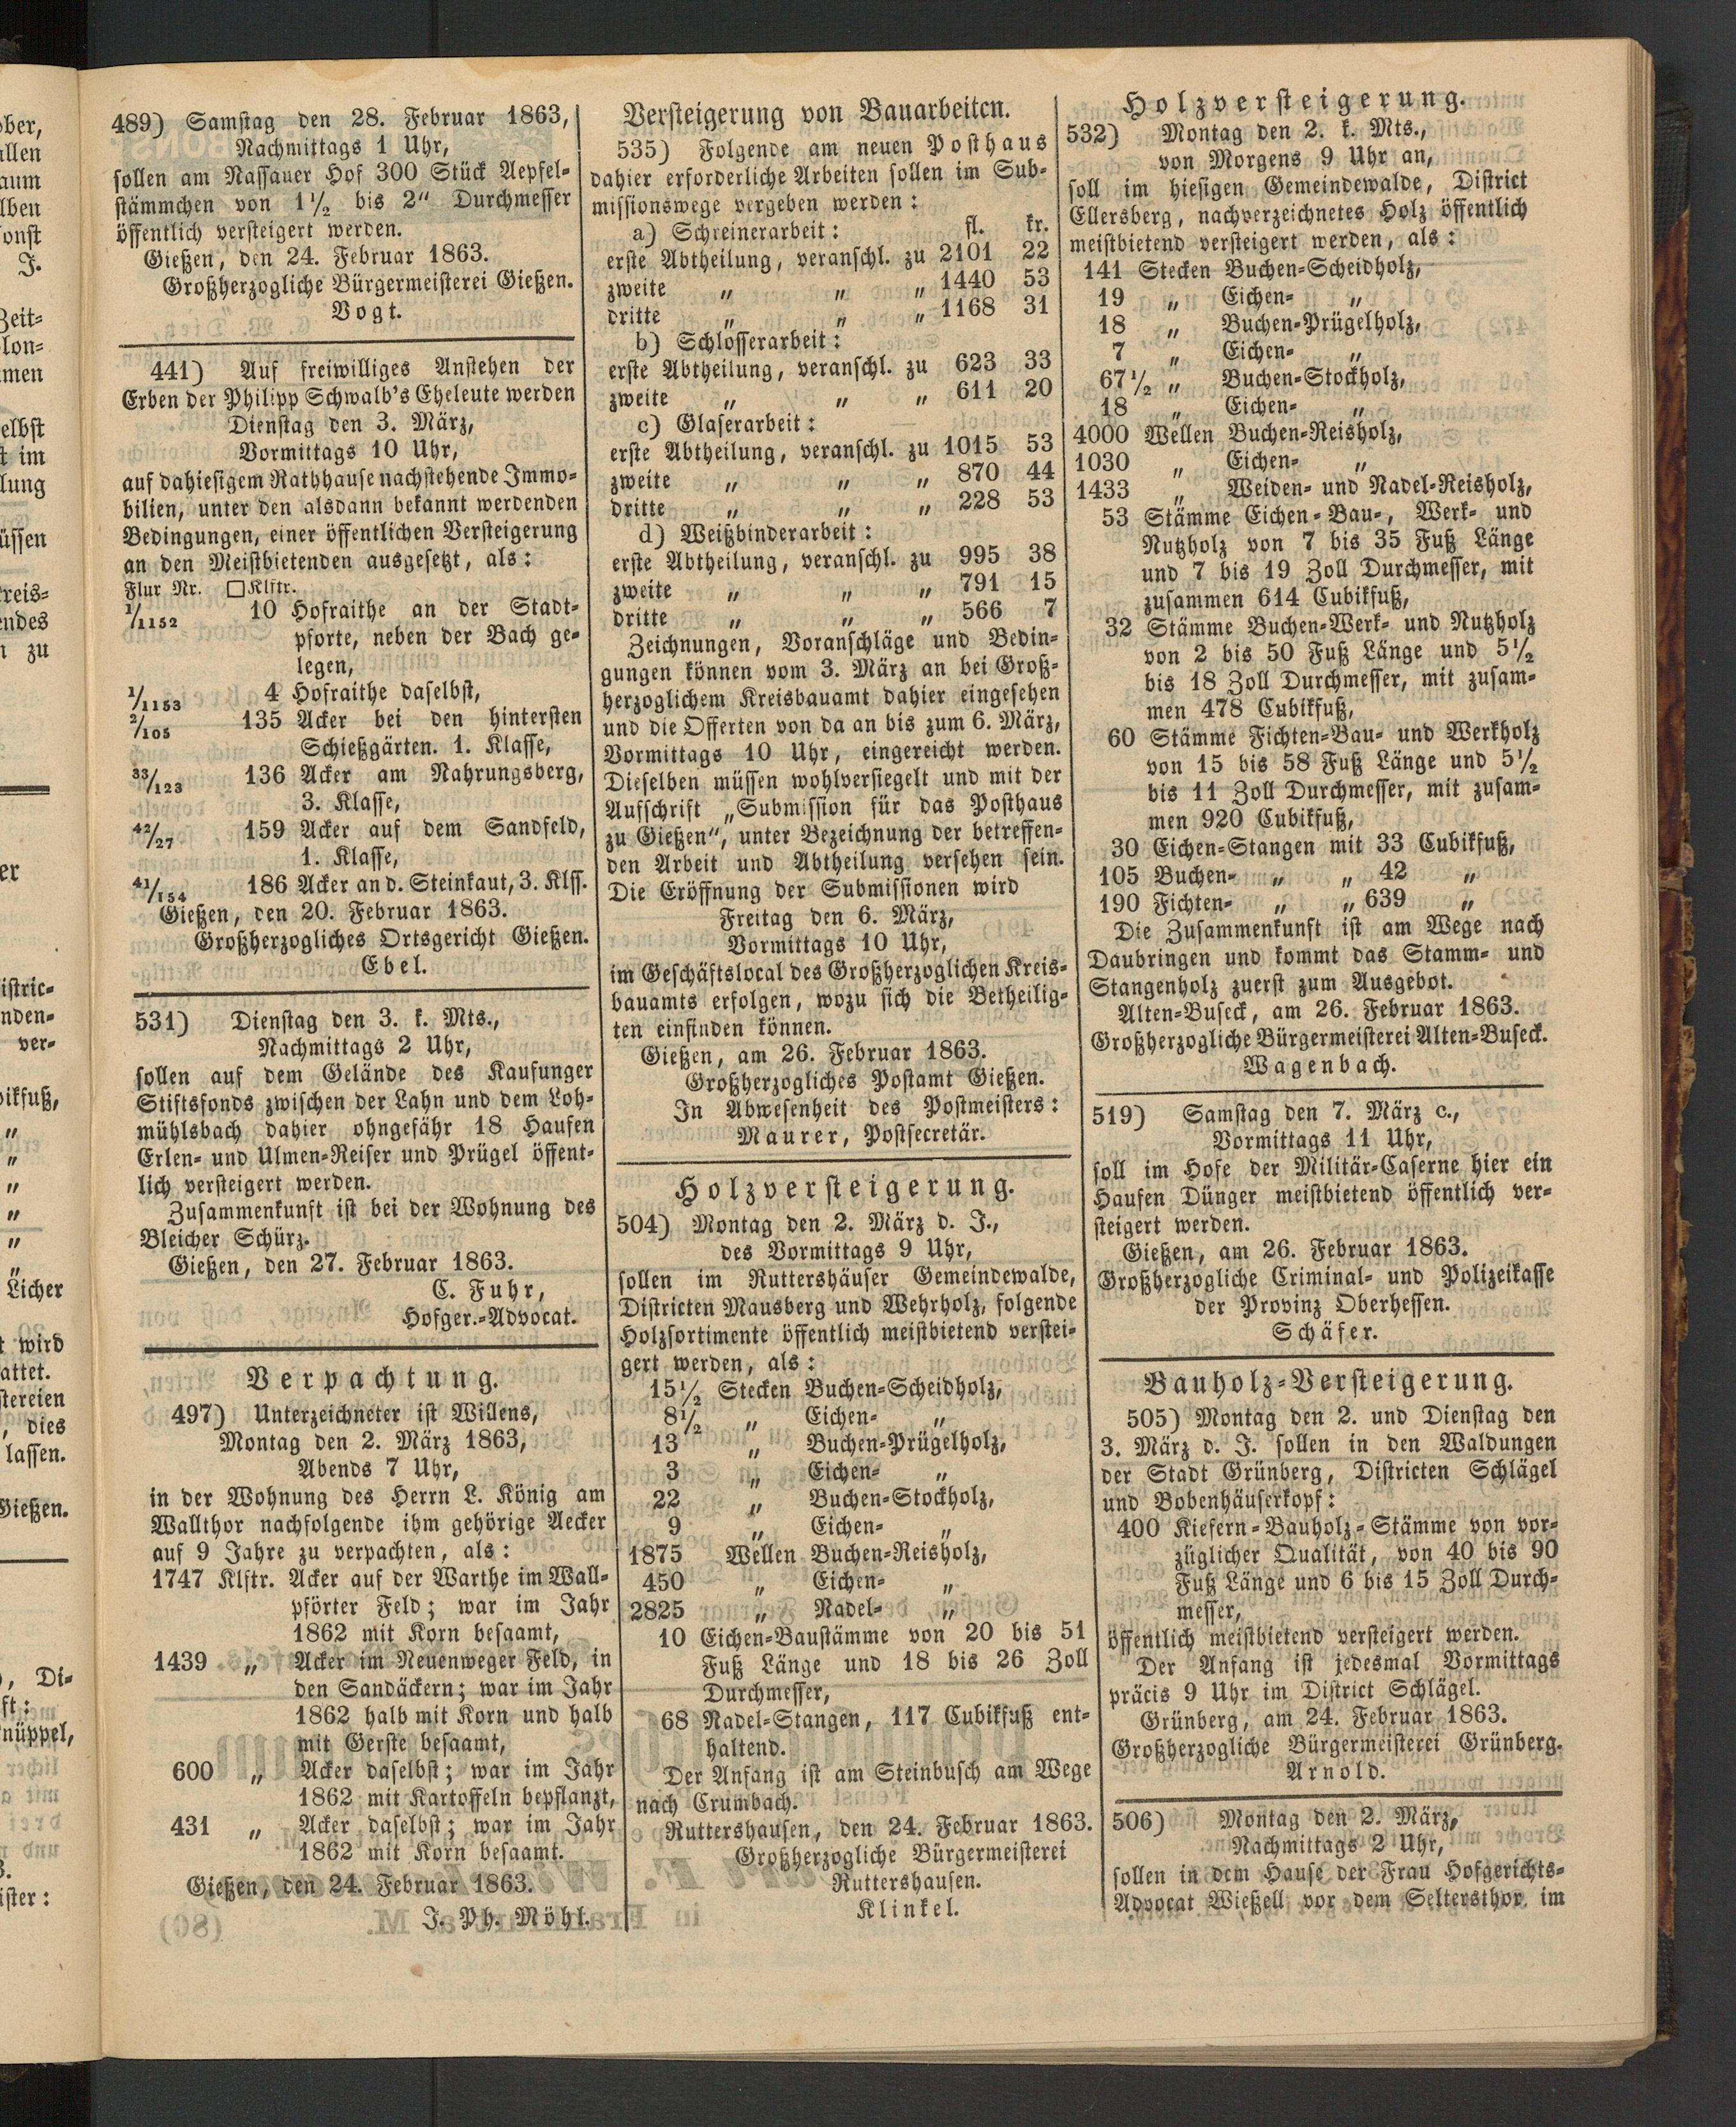 489) Samstag den 28. Februar 1863,
Nachmittags 1 Uhr,
sollen am Nassauer Hof 300 Stück Aepfel-
stämmchen von 1½ bis 2“ Durchmesser
öffentlich versteigert werden.
Gießen, den 24. Februar 1863.
Großherzogliche Bürgermeisterei Gießen.
Vogt.
441) Auf freiwilliges Anstehen der
Erben der Philipp Schwalb's Eheleute werden
Dienstag den 3. März,
Vormittags 10 Uhr,
auf dahiesigem Rathhause nachstehende Immo-
bilien, unter den alsdann bekannt werdenden
Bedingungen, einer öffentlichen Versteigerung
an den Meistbietenden ausgesetzt, als:
Flur Nr. □Klftr.
1/1152 10 Hofraithe an der Stadt-
pforte, neben der Bach ge-
legen,
1/1153 4 Hofraithe daselbst,
2/105 135 Acker bei den hintersten
Schießgärten. 1. Klasse,
33/123 136 Acker am Nahrungsberg,
3. Klasse,
42/27 159 Acker auf dem Sandfeld,
1. Klasse,
41/154 186 Acker an d. Steinkaut, 3. Klss.
Gießen, den 20. Februar 1863.
Großherzogliches Ortsgericht Gießen.
Ebel.
531) Dienstag den 3. k. Mts.,
Nachmittags 2 Uhr,
sollen auf dem Gelände des Kaufunger
Stiftsfonds zwischen der Lahn und dem Loh-
mühlsbach dahier ohngefähr 18 Haufen
Erlen- und Ulmen-Reiser und Prügel öffent-
lich versteigert werden.
Zusammenkunft ist bei der Wohnung des
Bleicher Schürz.
Gießen, den 27. Februar 1863.
C. Fuhr,
Hofger.-Advocat.
Verpachtung.
497) Unterzeichneter ist Willens,
Montag den 2. März 1863,
Abends 7 Uhr,
in der Wohnung des Herrn L. König am
Wallthor nachfolgende ihm gehörige Aecker
auf 9 Jahre zu verpachten, als:
1747 Klftr. Acker auf der Warthe im Wall-
pförter Feld; war im Jahr
1862 mit Korn besaamt,
1439 „ Acker im Neuenweger Feld, in
den Sandäckern; war im Jahr
1862 halb mit Korn und halb
mit Gerste besaamt,
600 „ Acker daselbst; war im Jahr
1862 mit Kartoffeln bepflanzt,
431 „ Acker daselbst; war im Jahr
1862 mit Korn besaamt.
Gießen, den 24. Februar 1863.
J. Ph. Möhl.
Versteigerung von Bauarbeiten.
535) Folgende am neuen Posthaus
dahier erforderliche Arbeiten sollen im Sub-
missionswege vergeben werden:
a) Schreinerarbeit: fl. kr.
erste Abtheilung, veranschl. zu 2101 22
zweite „ „ „ 1440 53
dritte „ „ „ 1168 31
b) Schlosserarbeit:
erste Abtheilung, veranschl. zu 623 33
zweite „ „ „ 611 20
c) Glaserarbeit:
erste Abtheilung, veranschl. zu 1015 53
zweite „ „ „ 870 44
dritte „ „ „ 228 53
d) Weißbinderarbeit:
erste Abtheilung, veranschl. zu 995 38
zweite „ „ „ 791 15
dritte „ „ „ 566 7
Zeichnungen, Voranschläge und Bedin-
gungen können vom 3. März an bei Groß-
herzoglichem Kreisbauamt dahier eingesehen
und die Offerten von da an bis zum 6. März,
Vormittags 10 Uhr, eingereicht werden.
Dieselben müssen wohlversiegelt und mit der
Aufschrift „Submission für das Posthaus
zu Gießen“, unter Bezeichnung der betreffen-
den Arbeit und Abtheilung versehen sein.
Die Eröffnung der Submissionen wird
Freitag den 6. März,
Vormittags 10 Uhr,
im Geschäftslocal des Großherzoglichen Kreis-
bauamts erfolgen, wozu sich die Betheilig-
ten einfinden können.
Gießen, am 26. Februar 1863.
Großherzogliches Postamt Gießen.
In Abwesenheit des Postmeisters:
Maurer, Postsecretär.
Holzversteigerung.
504) Montag den 2. März d. J.,
des Vormittags 9 Uhr,
sollen im Ruttershäuser Gemeindewalde,
Districten Mausberg und Wehrholz, folgende
Holzsortimente öffentlich meistbietend verstei-
gert werden, als:
15½ Stecken Buchen-Scheidholz,
8½ „ Eichen- „
13 „ Buchen-Prügelholz,
3 „ Eichen- „
22 „ Buchen-Stockholz,
9 „ Eichen- „
1875 Wellen Buchen-Reisholz,
450 „ Eichen- „
2825 „ Nadel- „
10 Eichen-Baustämme von 20 bis 51
Fuß Länge und 18 bis 26 Zoll
Durchmesser,
68 Nadel-Stangen, 117 Cubikfuß ent-
haltend.
Der Anfang ist am Steinbusch am Wege
nach Crumbach.
Ruttershausen, den 24. Februar 1863.
Großherzogliche Bürgermeisterei
Ruttershausen.
Klinkel.
Holzversteigerung.
532) Montag den 2. k. Mts.,
von Morgens 9 Uhr an,
soll im hiesigen Gemeindewalde, District
Ellersberg, nachverzeichnetes Holz öffentlich
meistbietend versteigert werden, als:
141 Stecken Buchen-Scheidholz,
19 „ Eichen- „
18 „ Buchen-Prügelholz,
7 „ Eichen- „
67½ „ Buchen-Stockholz,
18 „ Eichen- „
4000 Wellen Buchen-Reisholz,
1030 „ Eichen- „
1433 „ Weiden- und Nadel-Reisholz,
53 Stämme Eichen-Bau-, Werk- und
Nutzholz von 7 bis 35 Fuß Länge
und 7 bis 19 Zoll Durchmesser, mit
zusammen 614 Cubikfuß,
32 Stämme Buchen-Werk- und Nutzholz
von 2 bis 50 Fuß Länge und 5½
bis 18 Zoll Durchmesser, mit zusam-
men 478 Cubikfuß,
60 Stämme Fichten-Bau- und Werkholz
von 15 bis 58 Fuß Länge und 5½
bis 11 Zoll Durchmesser, mit zusam-
men 920 Cubikfuß,
30 Eichen-Stangen mit 33 Cubikfuß,
105 Buchen- „ „ 42 „
190 Fichten- „ „ 639 „
Die Zusammenkunft ist am Wege nach
Daubringen und kommt das Stamm- und
Stangenholz zuerst zum Ausgebot.
Alten-Buseck, am 26. Februar 1863.
Großherzogliche Bürgermeisterei Alten-Buseck.
Wagenbach.
519) Samstag den 7. März c.,
Vormittags 11 Uhr,
soll im Hofe der Militär-Caserne hier ein
Haufen Dünger meistbietend öffentlich ver-
steigert werden.
Gießen, am 26. Februar 1863.
Großherzogliche Criminal- und Polizeikasse
der Provinz Oberhessen.
Schäfer.
Bauholz-Versteigerung.
505) Montag den 2. und Dienstag den
3. März d. J. sollen in den Waldungen
der Stadt Grünberg, Districten Schlägel
und Bobenhäuserkopf:
400 Kiefern-Bauholz-Stämme von vor-
züglicher Qualität, von 40 bis 90
Fuß Länge und 6 bis 15 Zoll Durch-
messer,
öffentlich meistbietend versteigert werden.
Der Anfang ist jedesmal Vormittags
präcis 9 Uhr im District Schlägel.
Grünberg, am 24. Februar 1863.
Großherzogliche Bürgermeisterei Grünberg.
Arnold.
506) Montag den 2. März,
Nachmittags 2 Uhr,
sollen in dem Hause der Frau Hofgerichts-
Advocat Wießell vor dem Seltersthor im